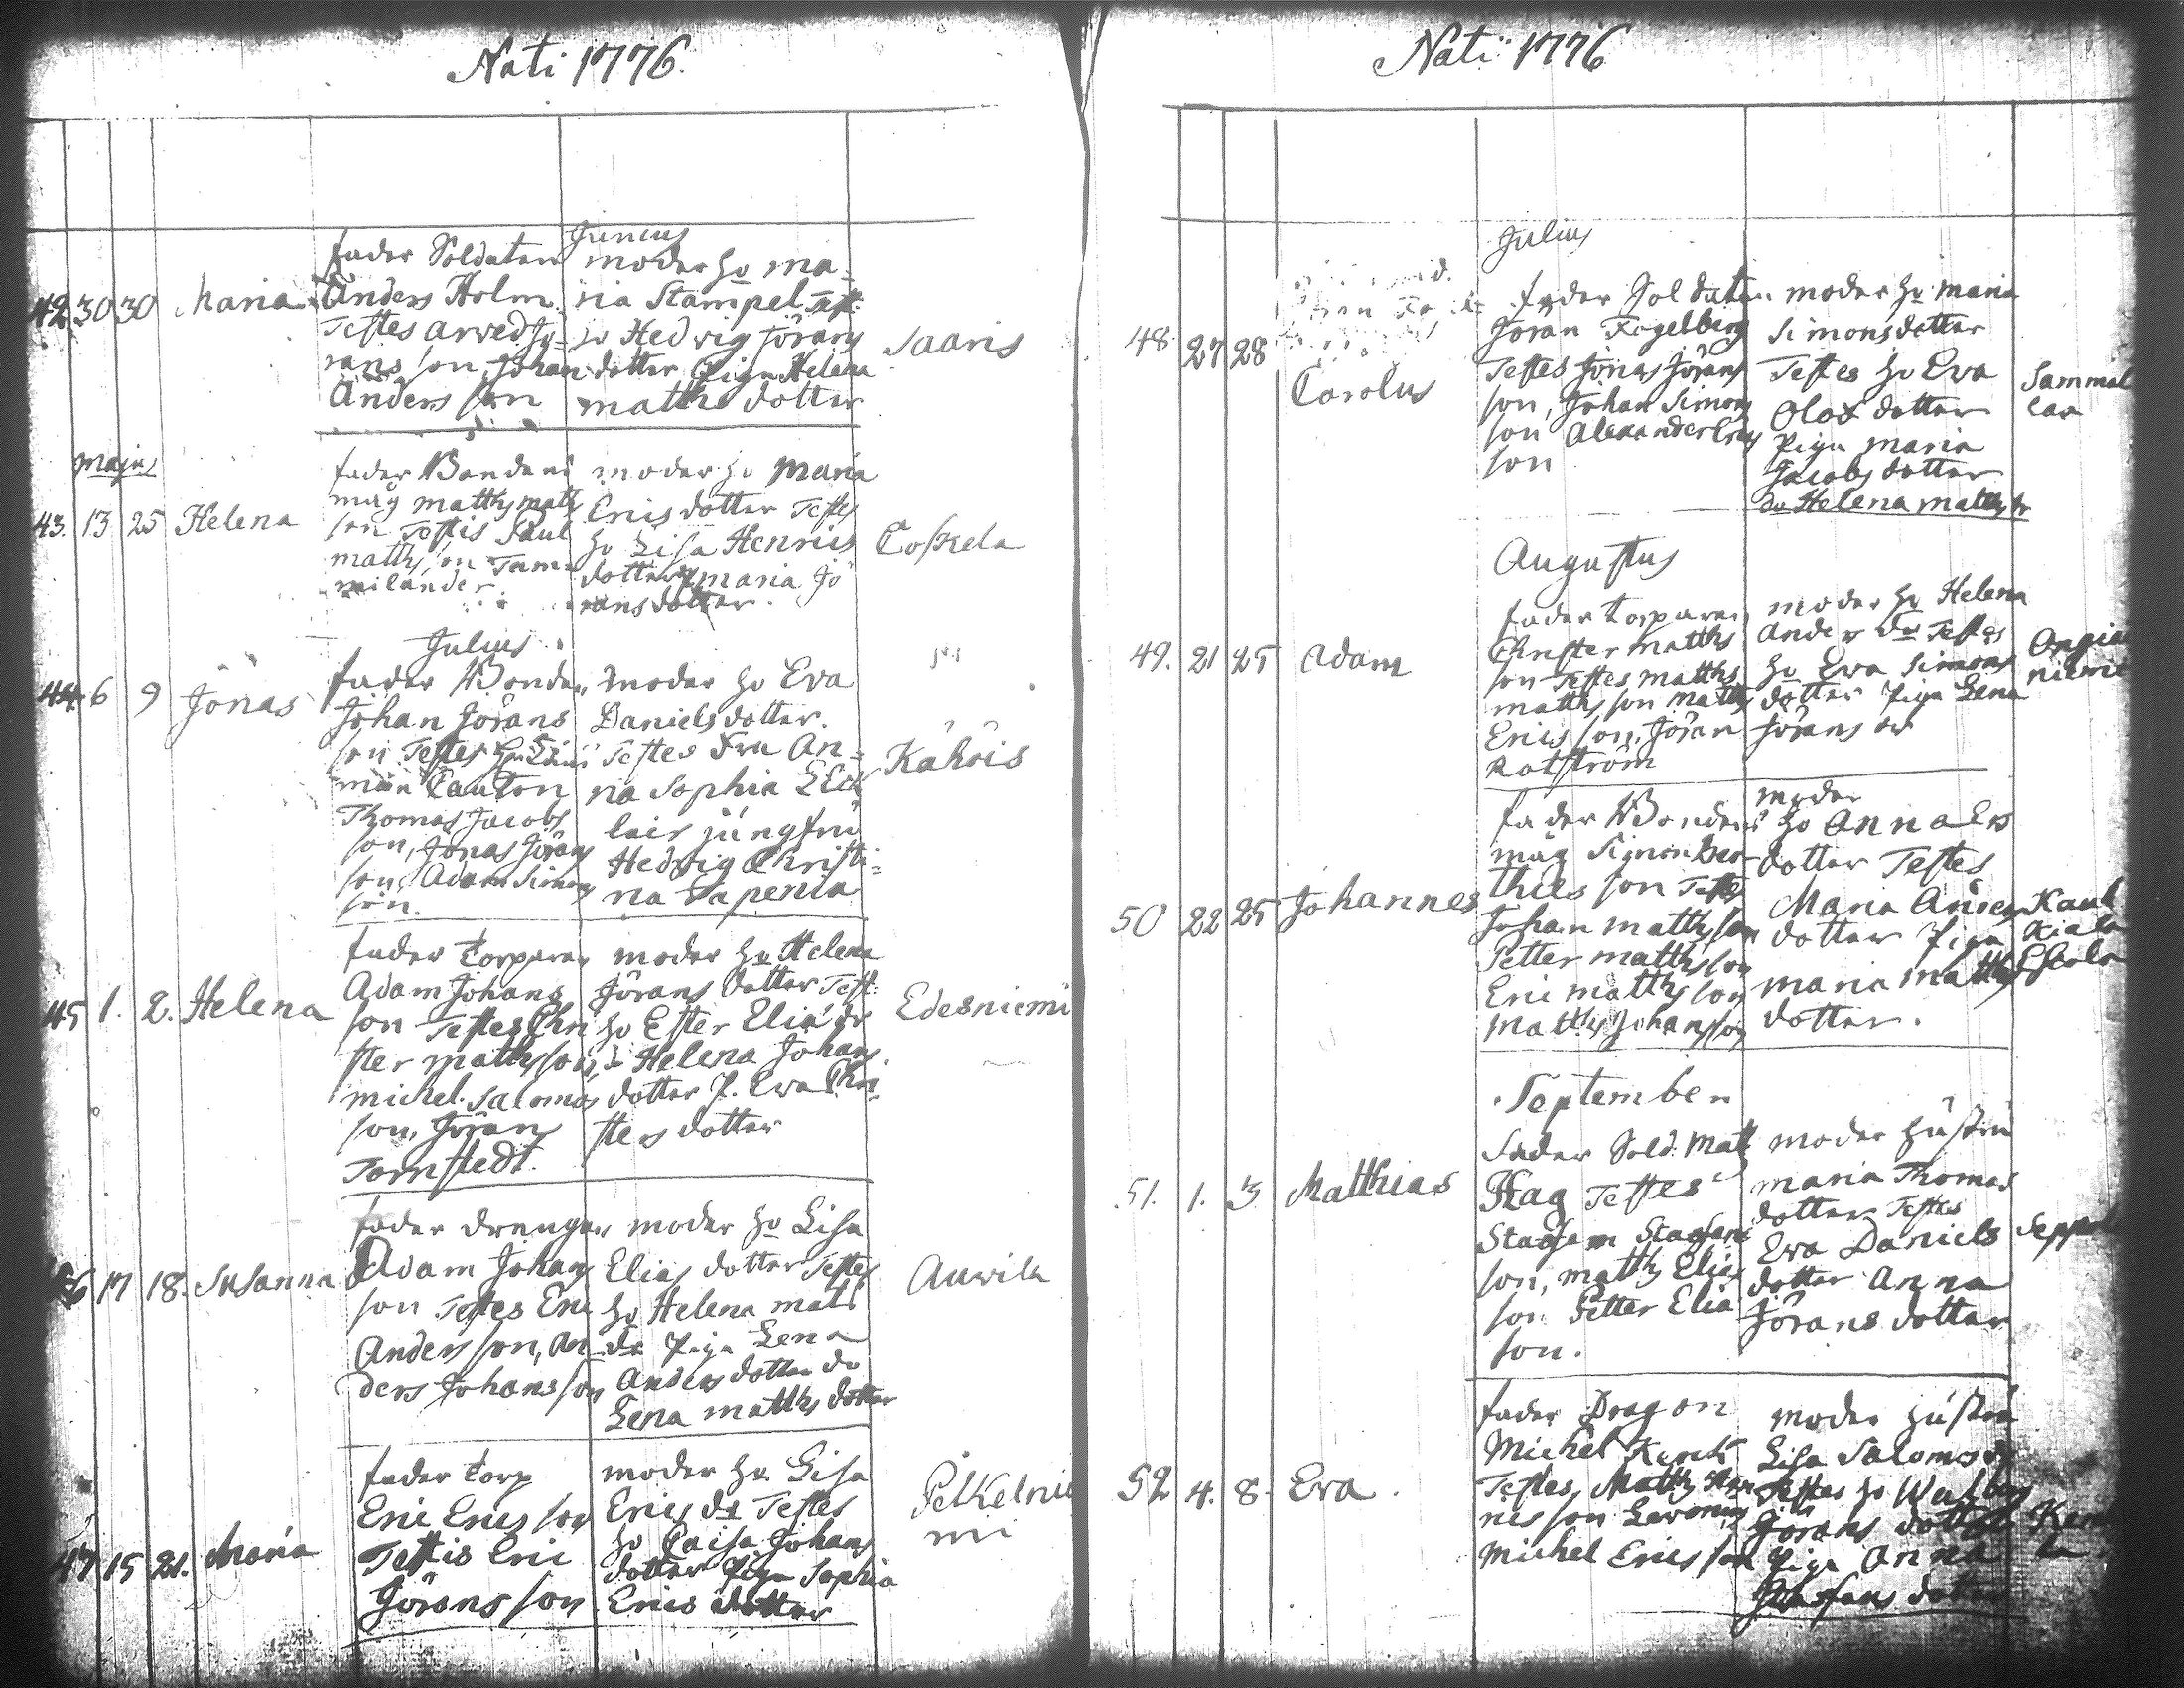 Nati 1776.
Junius
42 30 30 Maria
fader Soldaten
Anders Holm
Testes Arved Jö-
rans son, Johan
Anders son
moder ho Ma-
ria Stampel Test:
ho Hedvig Jörans
dotter Piga Helena
Matths dotter
Saaris
Majus
43. 13 25 Helena
fader Bondens
måg Matths Matts
son Testis Paul
Matths son Tam-
milander.
moder ho Maria
Erics dotter Testes
ho Lisa Henrics
dotter Maria Jö
ransdotter.
Coskela
Julius
44 6 9 Jonas
fader Bonden
Johan Jörans
son Testes
män Canton
Thomas Jacobs
son, Jonas Jörans
son, Adam Simons
son.
moder ho Eva
Daniels dotter.
Testes Fru An-
na Sophia
jungfru
Hedvig Christi-
na
Kähöis
45 1. 2. Helena
fader Torparen
Adam Johans
son Testes Chri
ster Matths son,
Michel Salomos
son, Jöran
Tornstedt.
moder ho Helena
Jörans dotter Test:
ho Ester Elia dr
Helena Johans
dotter P. Eva Chri-
sters dotter
Edesniemi
46 17 18. Susanna
fader drengen
Adam Johans
son Testes Eric
Anders son, An-
ders Johans son
moder ho Lisa
Elias dotter Testes
ho Helena Mats
dr Piga Lena
Anders dotter do
Lena Matths dotter
Auvila
47 15 21. Maria
fader Torp
Eric Erics son
Testis Eric
Jörans son
moder ho Lisa
Erics dr Testes
ho Caisa Johans
dotter Piga Sophia
Erics dotter
Pelkelnie
mi
Nati 1776
Julius
48 27 28
Carolus
fader Soldaten
Jöran Fogelberg
Testes Jonas Jörans
son, Johan Simons
son Alexander Erics
son
moder ho Maria
Simons dotter
Testes ho Eva
Olofs dotter
Piga Maria
Jacobs dotter
do Helena Matths dr
Sammal
Augustus
49. 21 25 Adam
fader Torparen
Christer Matths
son Testes Matths
Matths son Matths
Erics son, Jöran
Rotström
moder ho Helena
Anders dr Testes
ho Eva Simons
dotter Piga Lena
Jörans dr
50 22 25 Johannes
fader Bondens
måg Simon Bar-
thels son Testes
Johan Matths son
Petter Matths son
Eric Matths son
Matths Johansson
moder
ho Anna
dotter Testes
Maria Anders
dotter Piga
Maria Matths
dotter.
September
51. 1. 3 Matthias
fader Sold. Matt
Flag Testes
Staffan Staffans
son, Matths Elias
son Petter Elia
son.
moder hustru
Maria Thomas
dotter Testes
Eva Daniels
dotter Anna
Jörans dotter
52 4. 8. Eva
fader Dragon
Michel
Testes, Matths Hen
rics son
Michel Erics son
moder hustru
Lisa Salomos dr
Testes ho
Jörans dotter
Piga Anna
dotter